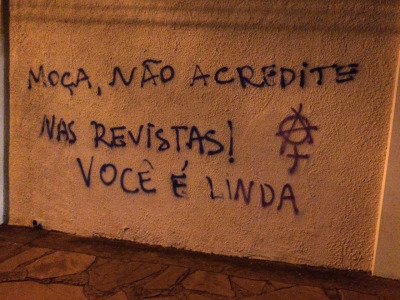 MOÇA, NÃO ACREDITE
NAS REVISTAS!
VOCÊ É LINDA